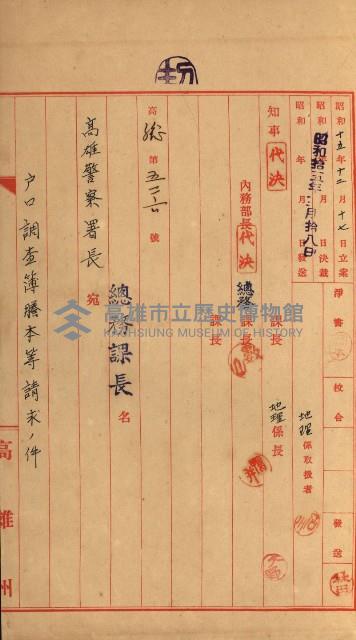 昭和十五年十二月十七日立案
昭和 年 月 日決裁
昭和拾五年 月拾八日
昭和 年 月 日發送
淨書
校合
發送
地理係取扱者
知事代決
內務部長代決
總務課長
課長
課長
地理係長
高總第五二六〇號
總務課長名
高雄警察署長宛
戶口調查簿謄本等請求ノ件
高雄州
高雄市立歷史博物館
KAOHSIUNG MUSEUM OF HISTORY